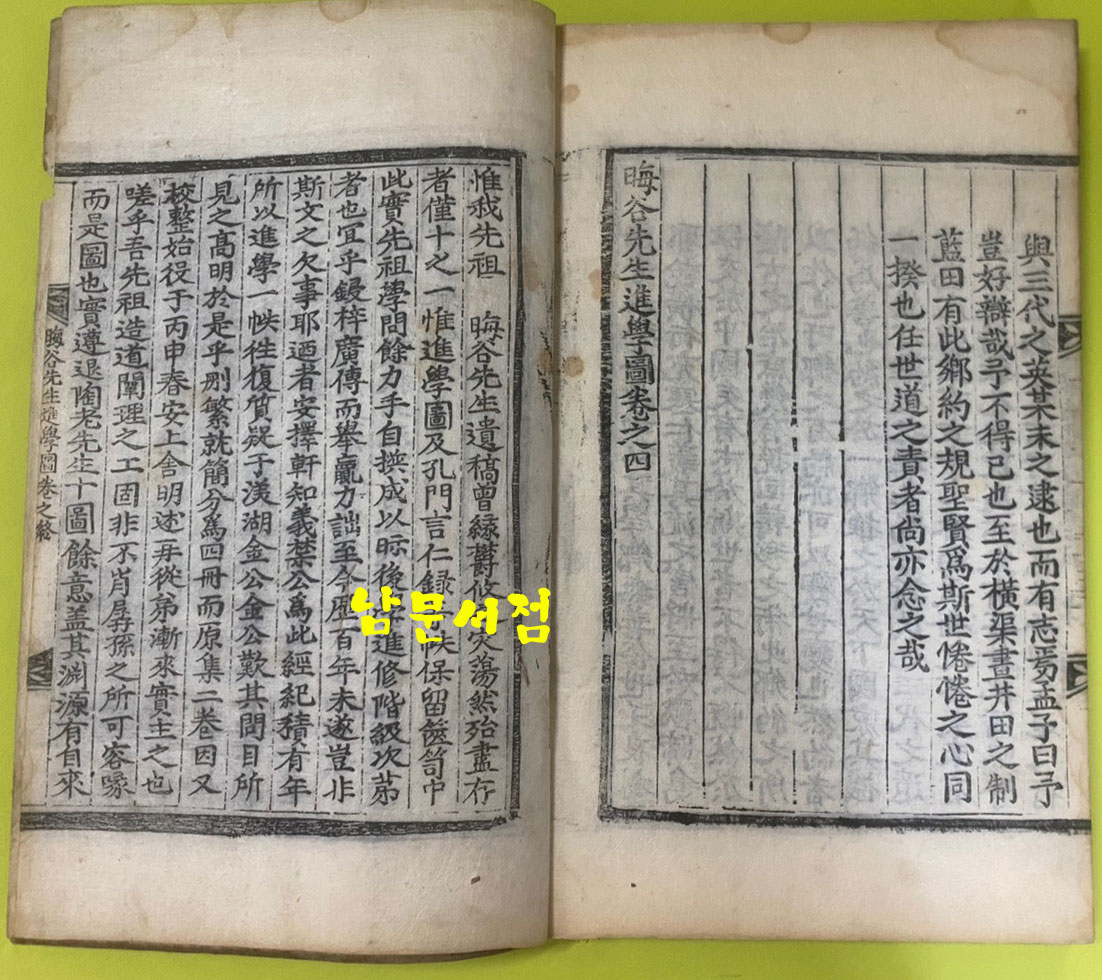 與三代之英某未之逮也而有志焉孟子曰予
豈好辯哉予不得已也至於橫渠畫井田之制
藍田有此鄉約之規聖賢爲斯世惓惓之心同
一揆也任世道之責者尚亦念之哉
晦谷先生進學圖卷之四
惟我先祖 晦谷先生遺稿曾緣欝攸災蕩然殆盡存
者僅十之一惟進學圖及孔門言仁錄一帙保留篋笥中
此實先祖學問餘力手自撰成以晾後學進修階級次第
者也宜乎鋟梓廣傳而擧贏力詘至今歷百年未遂豈非
斯文之欠事耶迺者安擇軒知義禁公爲此經紀積有年
所以進學一帙徃復質疑于渼湖金公金公歎其問目所
見之高明於是乎刪繁就簡分爲四冊而原集二卷因又
校整始役于丙申春安上舍明述再從弟漸來實主之也
嗟乎吾先祖造道闡理之工固非不肖孱孫之所可容喙
而是圖也實遵退陶老先生十圖餘意盖其淵源有自來
晦谷先生進學圖 卷之終
남문서점